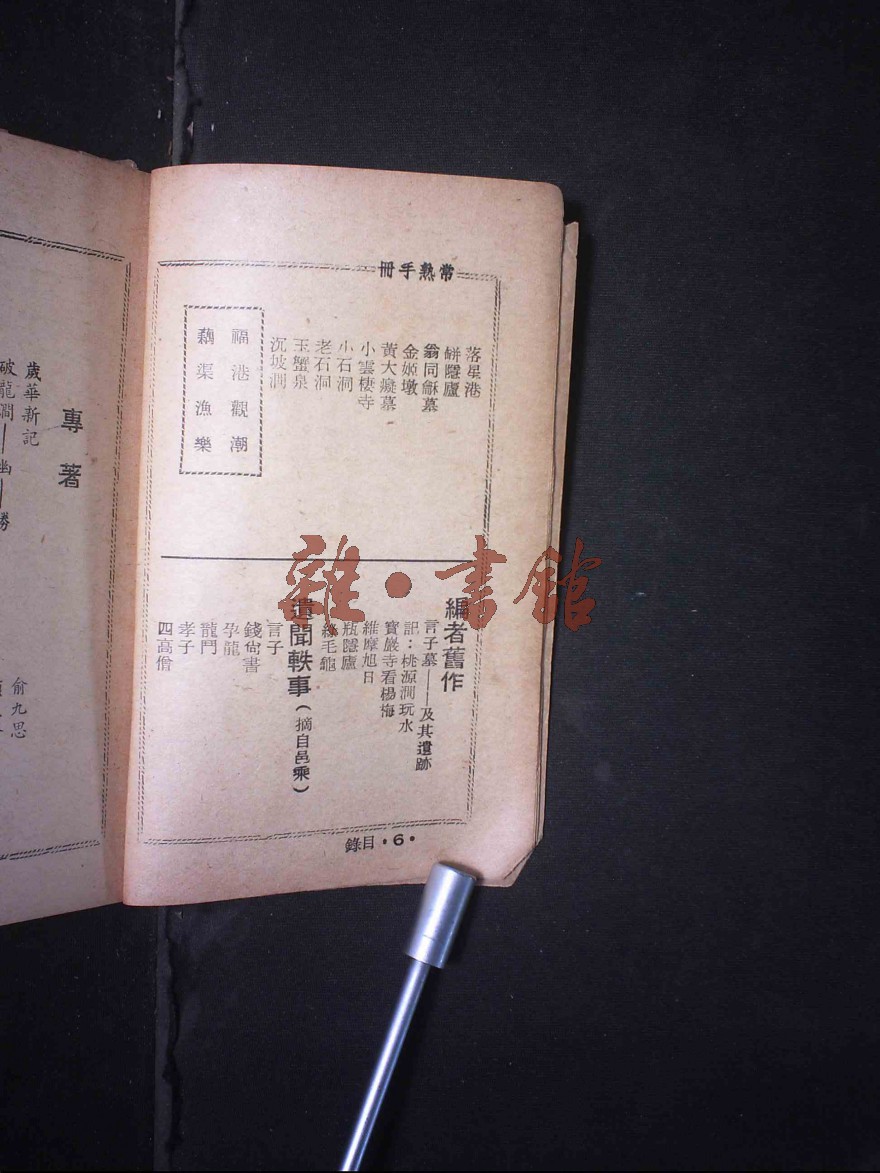 常熟手冊
落星港
缾隱廬
翁同龢墓
金姬墩
黃大癡墓
小雲棲寺
小石洞
老石洞
玉蟹泉
沉坡澗
福港觀潮
藕渠漁樂
編者舊作
言子墓——及其遺跡
記:桃源澗玩水
寶巖寺看楊梅
維摩旭日
瓶隱廬
綠毛龜
遺聞軼事(摘自邑乘)
言子
錢尙書
孕龍
龍門
孝子
四高僧
目錄 ·6·
專著
歲華新記
破龍澗——幽——勝
俞九思
雜·書館